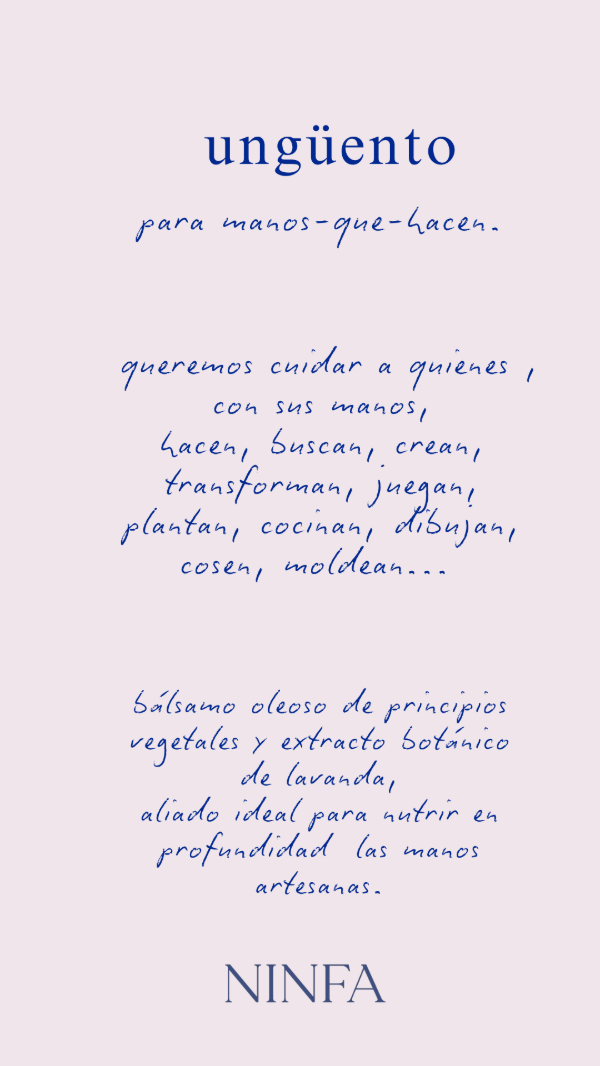 ungüento
para manos-que-hacen.
queremos cuidar a quienes ,
con sus manos,
hacen, buscan, crean,
transforman, juegan,
plantan, cocinan, dibujan,
cosen, moldean...
bálsamo oleoso de principios
vegetales y extracto botánico
de lavanda,
aliado ideal para nutrir en
profundidad las manos
artesanas.
NINFA